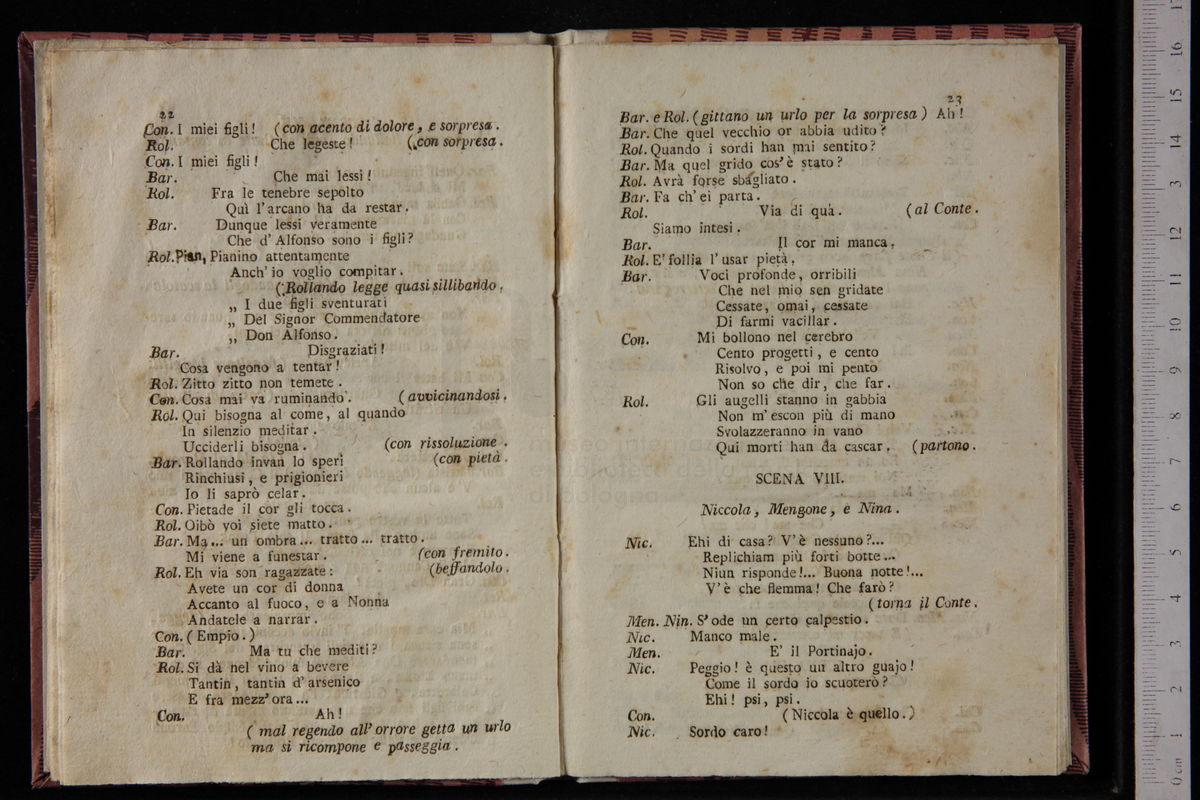 22
Con. I miei figli! (con acento di dolore, e sorpresa.
Rol. Che legeste! (con sorpresa.
Con. I miei figli!
Bar. Che mai lessi!
Rol. Fra le tenebre sepolto
Quì l'arcano ha da restar.
Bar. Dunque lessi veramente
Che d'Alfonso sono i figli?
Rol. Pian, Pianino attentamente
Anch'io voglio compitar.
(Rollando legge quasi sillibando.
„ I due figli sventurati
„ Del Signor Commendatore
„ Don Alfonso.
Bar. Disgraziati!
Cosa vengono a tentar!
Rol. Zitto zitto non temete.
Con. Cosa mai va ruminando. (avvicinandosi.
Rol. Qui bisogna al come, al quando
In silenzio meditar.
Ucciderli bisogna. (con rissoluzione.
Bar. Rollando invan lo speri (con pietà.
Rinchiusi, e prigionieri
Io li saprò celar.
Con. Pietade il cor gli tocca.
Rol. Oibò voi siete matto.
Bar. Ma... un ombra... tratto... tratto.
Mi viene a funestar. (con fremito.
Rol. Eh via son ragazzate: (beffandolo.
Avete un cor di donna
Accanto al fuoco, e a Nonna
Andatele a narrar.
Con. (Empio.)
Bar. Ma tu che mediti?
Rol. Si dà nel vino a bevere
Tantin, tantin d'arsenico
E fra mezz'ora...
Con. Ah!
(mal regendo all'orrore getta un urlo
ma si ricompone e passeggia.
23
Bar. e Rol. (gittano un urlo per la sorpresa) Ah!
Bar. Che quel vecchio or abbia udito?
Rol. Quando i sordi han mai sentito?
Bar. Ma quel grido cos'è stato?
Rol. Avrà forse sbagliato.
Bar. Fa ch'ei parta.
Rol. Via di quà. (al Conte.
Siamo intesi.
Bar. Il cor mi manca.
Rol. E' follia l'usar pietà.
Bar. Voci profonde, orribili
Che nel mio sen gridate
Cessate, omai, cessate
Di farmi vacillar.
Con. Mi bollono nel cerebro
Cento progetti, e cento
Risolvo, e poi mi pento
Non so che dir, che far.
Rol. Gli augelli stanno in gabbia
Non m'escon più di mano
Svolazzeranno in vano
Qui morti han da cascar. (partono.
SCENA VIII.
Niccola, Mengone, e Nina.
Nic. Ehi di casa? V'è nessuno?...
Replichiam più forti botte...
Niun risponde!... Buona notte!...
V'è che flemma! Che farò?
(torna il Conte.
Men. Nin. S'ode un certo calpestio.
Nic. Manco male.
Men. E' il Portinajo.
Nic. Peggio! è questo un altro guajo!
Come il sordo io scuoterò?
Ehi! psi, psi.
Con. (Niccola è quello.)
Nic. Sordo caro!